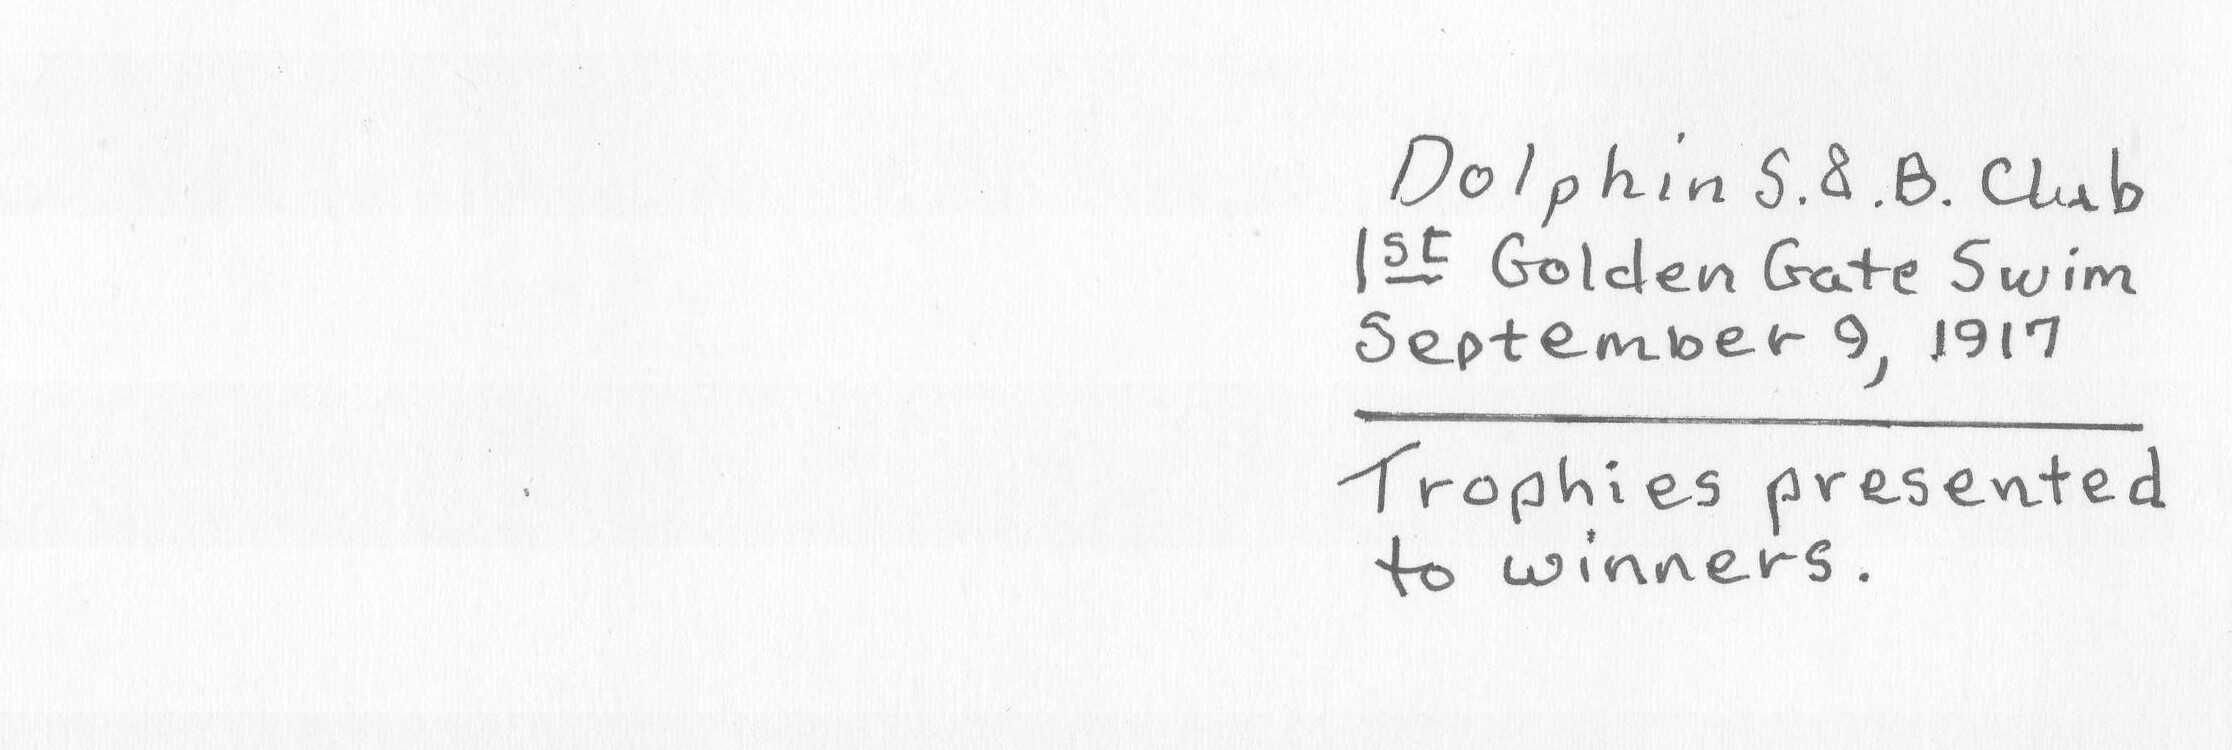 Dolphin S.&.B. Club
1st Golden Gate Swim
September 9, 1917
Trophies presented
to winners.